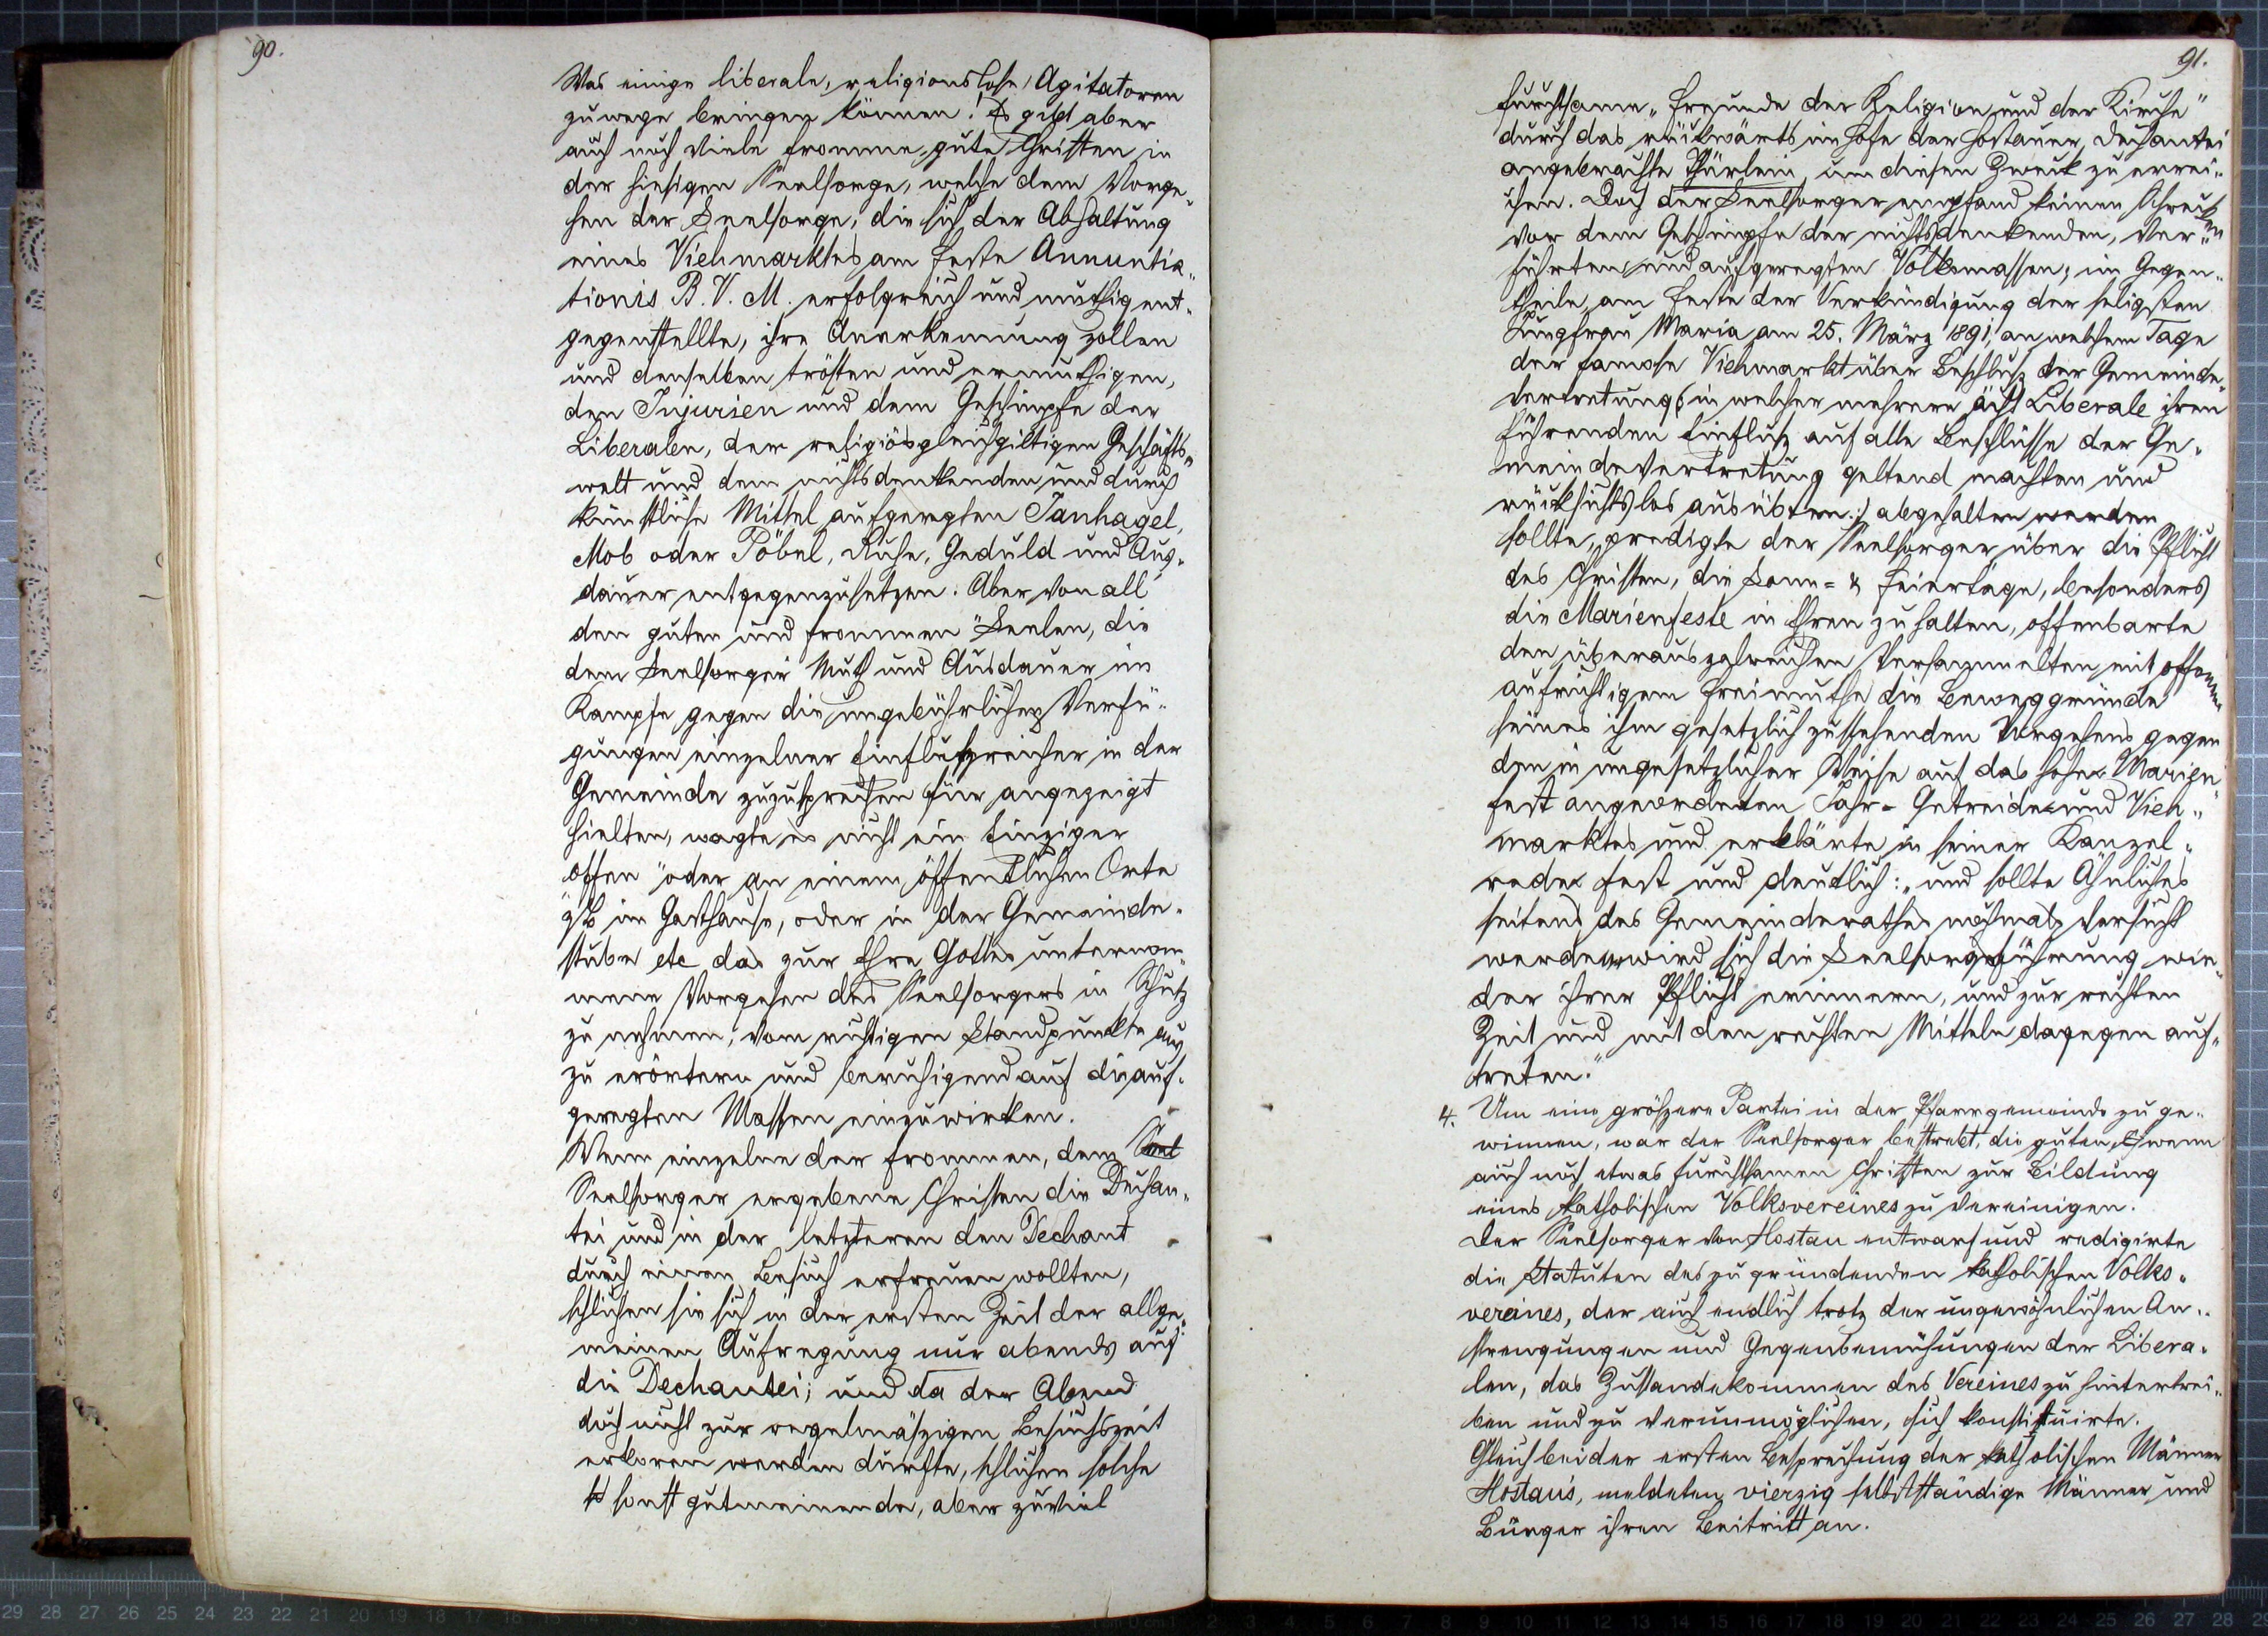 90.
Was einige liberale, religionslose, Agitatoren
zuwege bringen können! Es gibt aber
auch noch viele fromme, gute Christen in
der hiesigen Seelsorge, welche dem Vorge„
hen der Seelsorge, die sich der Abhaltung
eines Viehmarktes am Feste Annuntia„
tionis B. V. M. erfolgreich und muthig ent„
gegenstellte, ihre Anerkennung zollen
und denselben trösten und ermuthigen,
den Injurien und dem Geschimpfe der
Liberalen, der religiös gleichgiltigen Geschäfts„
welt und dem nichtsdenkenden und durch
künstliche Mittel aufgeregten Janhagel,
Mob oder Pöbel, Ruhe, Geduld und Aus„
dauer entgegenzusetzen. Aber von all
den guten und frommen Seelen, die
dem Seelsorger Muth und Ausdauer im
Kampfe gegen die ungebührlichen Verfü„
gungen einzelner Einflußreicher in der
Gemeinde zuzusprechen für angezeigt
hielten, wagte es nicht ein Einziger
offen oder an einem öffentlichen Orte
z b im Gasthause, oder in der Gemeinde„
stube etc das zur Ehre Gottes unternom„
mene Vorgehen des Seelsorgers in Schutz
zu nehmen, vom richtigen Standpunkte aus
zu erörtern und beruhigend auf die auf„
geregten Massen einzuwirken.
Wenn einzelne der frommen, dem Seel
Seelsorger ergebene Christen die Dechan„
tei und in der letzteren den Dechant
durch einen Besuch erfreuen wollten,
schlichen sie sich in der ersten Zeit der allge„
meinen Aufregung nur abends auf
die Dechantei; und da der Abend
doch nicht zur regelmäßigen Besuchszeit
erkoren werden durfte, schlichen solche
sonst gutmeinende, aber zuviel
91.
furchtsame „Freunde der Religion und der Kirche"
durch das rückwärts im Hofe der Hostauer Dechantei
angebrachte Thürlein, um diesen Zweck zu errei„
chen. Doch der Seelsorger empfand keinen Schrecken
vor dem Geschimpfe der nichtsdenkenden, ver„
führten und aufgeregten Volksmassen; im Gegen„
theile, am Feste der Verkündigung der seligsten
Jungfrau Maria am 25. März 1891, an welchem Tage
der famose Viehmarkt über Beschluß der Gemeinde„
vertretung (in welcher mehrere ächt Liberale ihren
führenden Einfluß auf alle Beschlüsse der Ge„
meindevertretung geltend machten und
rücksichtslos ausübten.) abgehalten werden
sollte, predigte der Seelsorger über die Pflicht
des Christen, die Sonn= & Feiertage, besonders
die Marienfeste in Ehren zu halten, offenbarte
den überaus zahlreichen Versammelten mit offenem
aufrichtigem Freimuthe die Beweggründe
seines ihm gesetzlich zustehenden Vorgehens gegen
den in ungesetzlicher Weise auf das hohe Marien„
fest angeordneten Jahr= Getreide= und Vieh„
marktes und erklärte in seiner Kanzel„
rede fest und deutlich: „und sollte Ähnliches
seitens des Gemeinderathes nochmals versucht
werden, wird sich die Seelsorgsführung wie„
der ihrer Pflicht erinnern, und zur rechten
Zeit und mit den rechten Mitteln dagegen auf„
treten."
4. Um eine größere Partei in der Pfarrgemeinde zu ge„
winnen, war der Seelsorger bestrebt, die guten, wenn
auch noch etwas furchtsamen Christen zur Bildung
eines katholischen Volksvereines zu vereinigen.
Der Seelsorger von Hostau entwarf und redigirte
die Statuten des zu gründenden katholischen Volks„
vereines, der auch endlich trotz der ungewöhnlichen An„
strengungen und Gegenbemühungen der Libera„
len, das Zustandekommen des Vereines zu hintertrei„
ben und zu verunmöglichen, sich konstituirte.
Gleich bei der ersten Besprechung der katholischen Männer
Hostau's, meldeten vierzig selbstständige Männer und
Bürger ihren Beitritt an.